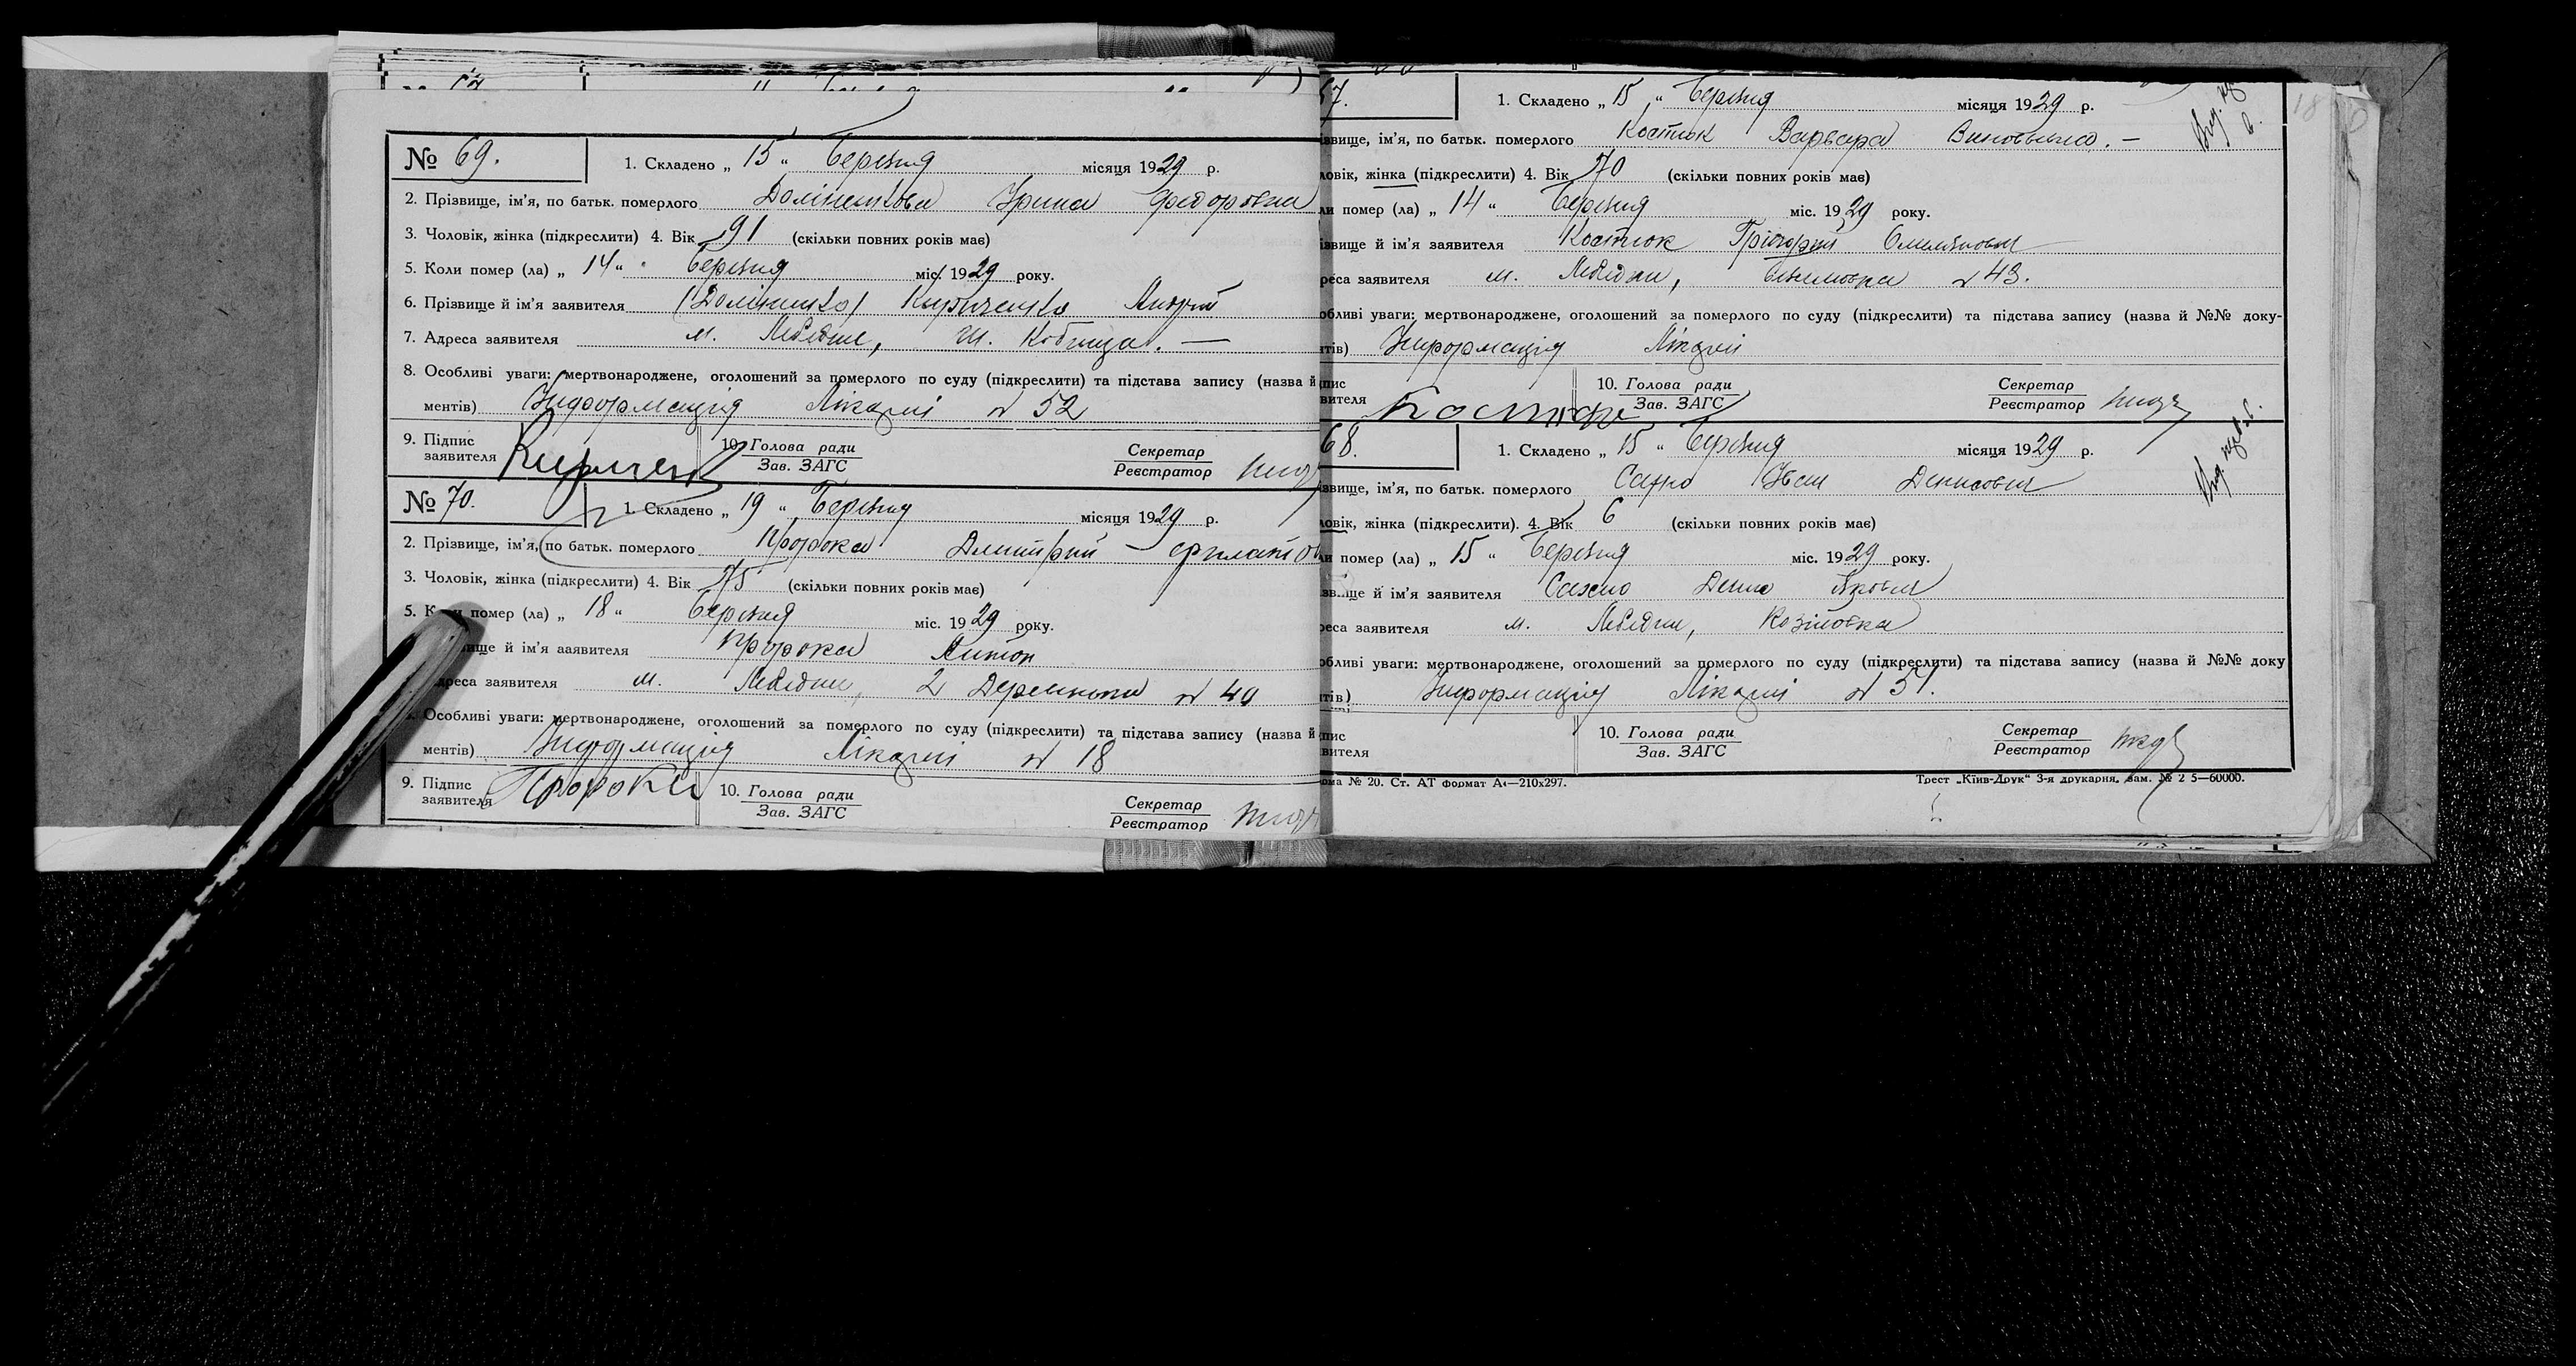 № 69. 1. Складено „ 15 “ Березня місяця 1929 р.
2. Прізвище, ім’я, по батьк. померлого Ирина Федоровна
3. Чоловік, жінка (підкреслити) 4. Вік 91 (скільки повних років має)
5. Коли помер (ла) „ 14 “ Березня міс. 1929 року.
6. Прізвище й ім’я заявителя Кириченко Андрій
7. Адреса заявителя м. Лебедин,
8. Особливі уваги: мертвонароджене, оголошений за померлого по суду (підкреслити) та підстава запису (назва й
ментів) Информація Лікарні № 52
9. Підпис заявителя 10. Голова ради Зав. ЗАГС Секретар Реєстратор
№ 70. 1. Складено „ 19 “ Березня місяця 1929 р.
2. Прізвище, ім’я, по батьк. померлого Пророка Дмитрий
3. Чоловік, жінка (підкреслити) 4. Вік 75 (скільки повних років має)
5. помер (ла) „ 18 “ Березня міс. 1929 року.
ище й ім’я заявителя Пророка Антон
дреса заявителя м. Лебедин, 2 № 40
Особливі уваги: мертвонароджене, оголошений за померлого по суду (підкреслити) та підстава запису (назва й
ментів) Информація Лікарні № 18
9. Підпис заявителя Пророка 10. Голова ради Зав. ЗАГС Секретар Реєстратор
67. 1. Складено „ 15 “ Березня місяця 1929 р.
звище, ім’я, по батьк. померлого Костюк Варвара
ловік, жінка (підкреслити) 4. Вік 70 (скільки повних років має)
ли помер (ла) „ 14 “ Березня міс. 1929 року.
звище й ім’я заявителя Костюк Григорий Омелянович
реса заявителя м. Лебедин, № 43.
обливі уваги: мертвонароджене, оголошений за померлого по суду (підкреслити) та підстава запису (назва й №№ доку-
тів) Информація Лікарні
пис вителя Костюк 10. Голова ради Зав. ЗАГС Секретар Реєстратор
68. 1. Складено „ 15 “ Березня місяця 1929 р.
звище, ім’я, по батьк. померлого Сахно Іван Денисович
ловік, жінка (підкреслити). 4. Вік 6 (скільки повних років має)
ли помер (ла) „ 15 “ Березня міс. 1929 року.
ще й ім’я заявителя Сахно Денис Якович
реса заявителя м. Лебедин, Козіловка
обливі уваги: мертвонароджене, оголошений за померлого по суду (підкреслити) та підстава запису (назва й №№ доку
тів) Информація Лікарні № 51.
пис вителя 10. Голова ради Зав. ЗАГС Секретар Реєстратор
ома № 20. Ст. АТ формат А4—210х297. Трест „Київ-Друк“ 3-я друкарня,